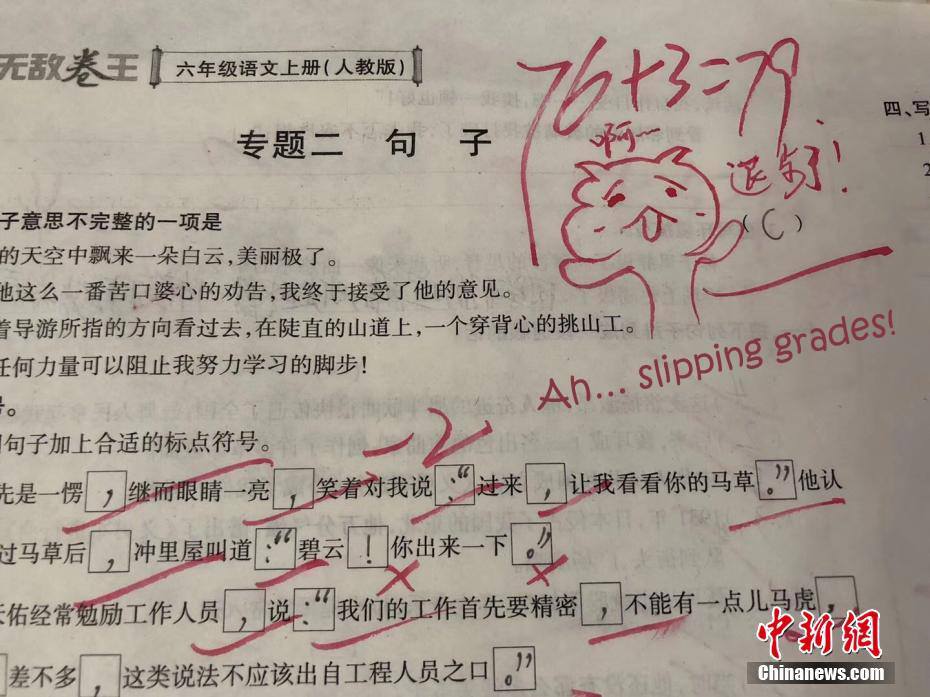 无敌卷王 六年级语文上册(人教版)
76+3=79
四、写
1
专题二 句 子
啊
退步了!
2
子意思不完整的一项是
(C)
的天空中飘来一朵白云,美丽极了。
他这么一番苦口婆心的劝告,我终于接受了他的意见。
着导游所指的方向看过去,在陡直的山道上,一个穿背心的挑山工。
任何力量可以阻止我努力学习的脚步!
Ah... slipping grades!
号。
句子加上合适的标点符号。
-2
先是一愣,继而眼睛一亮,笑着对我说:“过来,让我看看你的马草。”他认
过马草后,冲里屋叫道:“碧云!你出来一下。”
天佑经常勉励工作人员,说:“我们的工作首先要精密,不能有一点儿马虎,
差不多,这类说法不应该出自工程人员之口。”
中新网
Chinanews.com